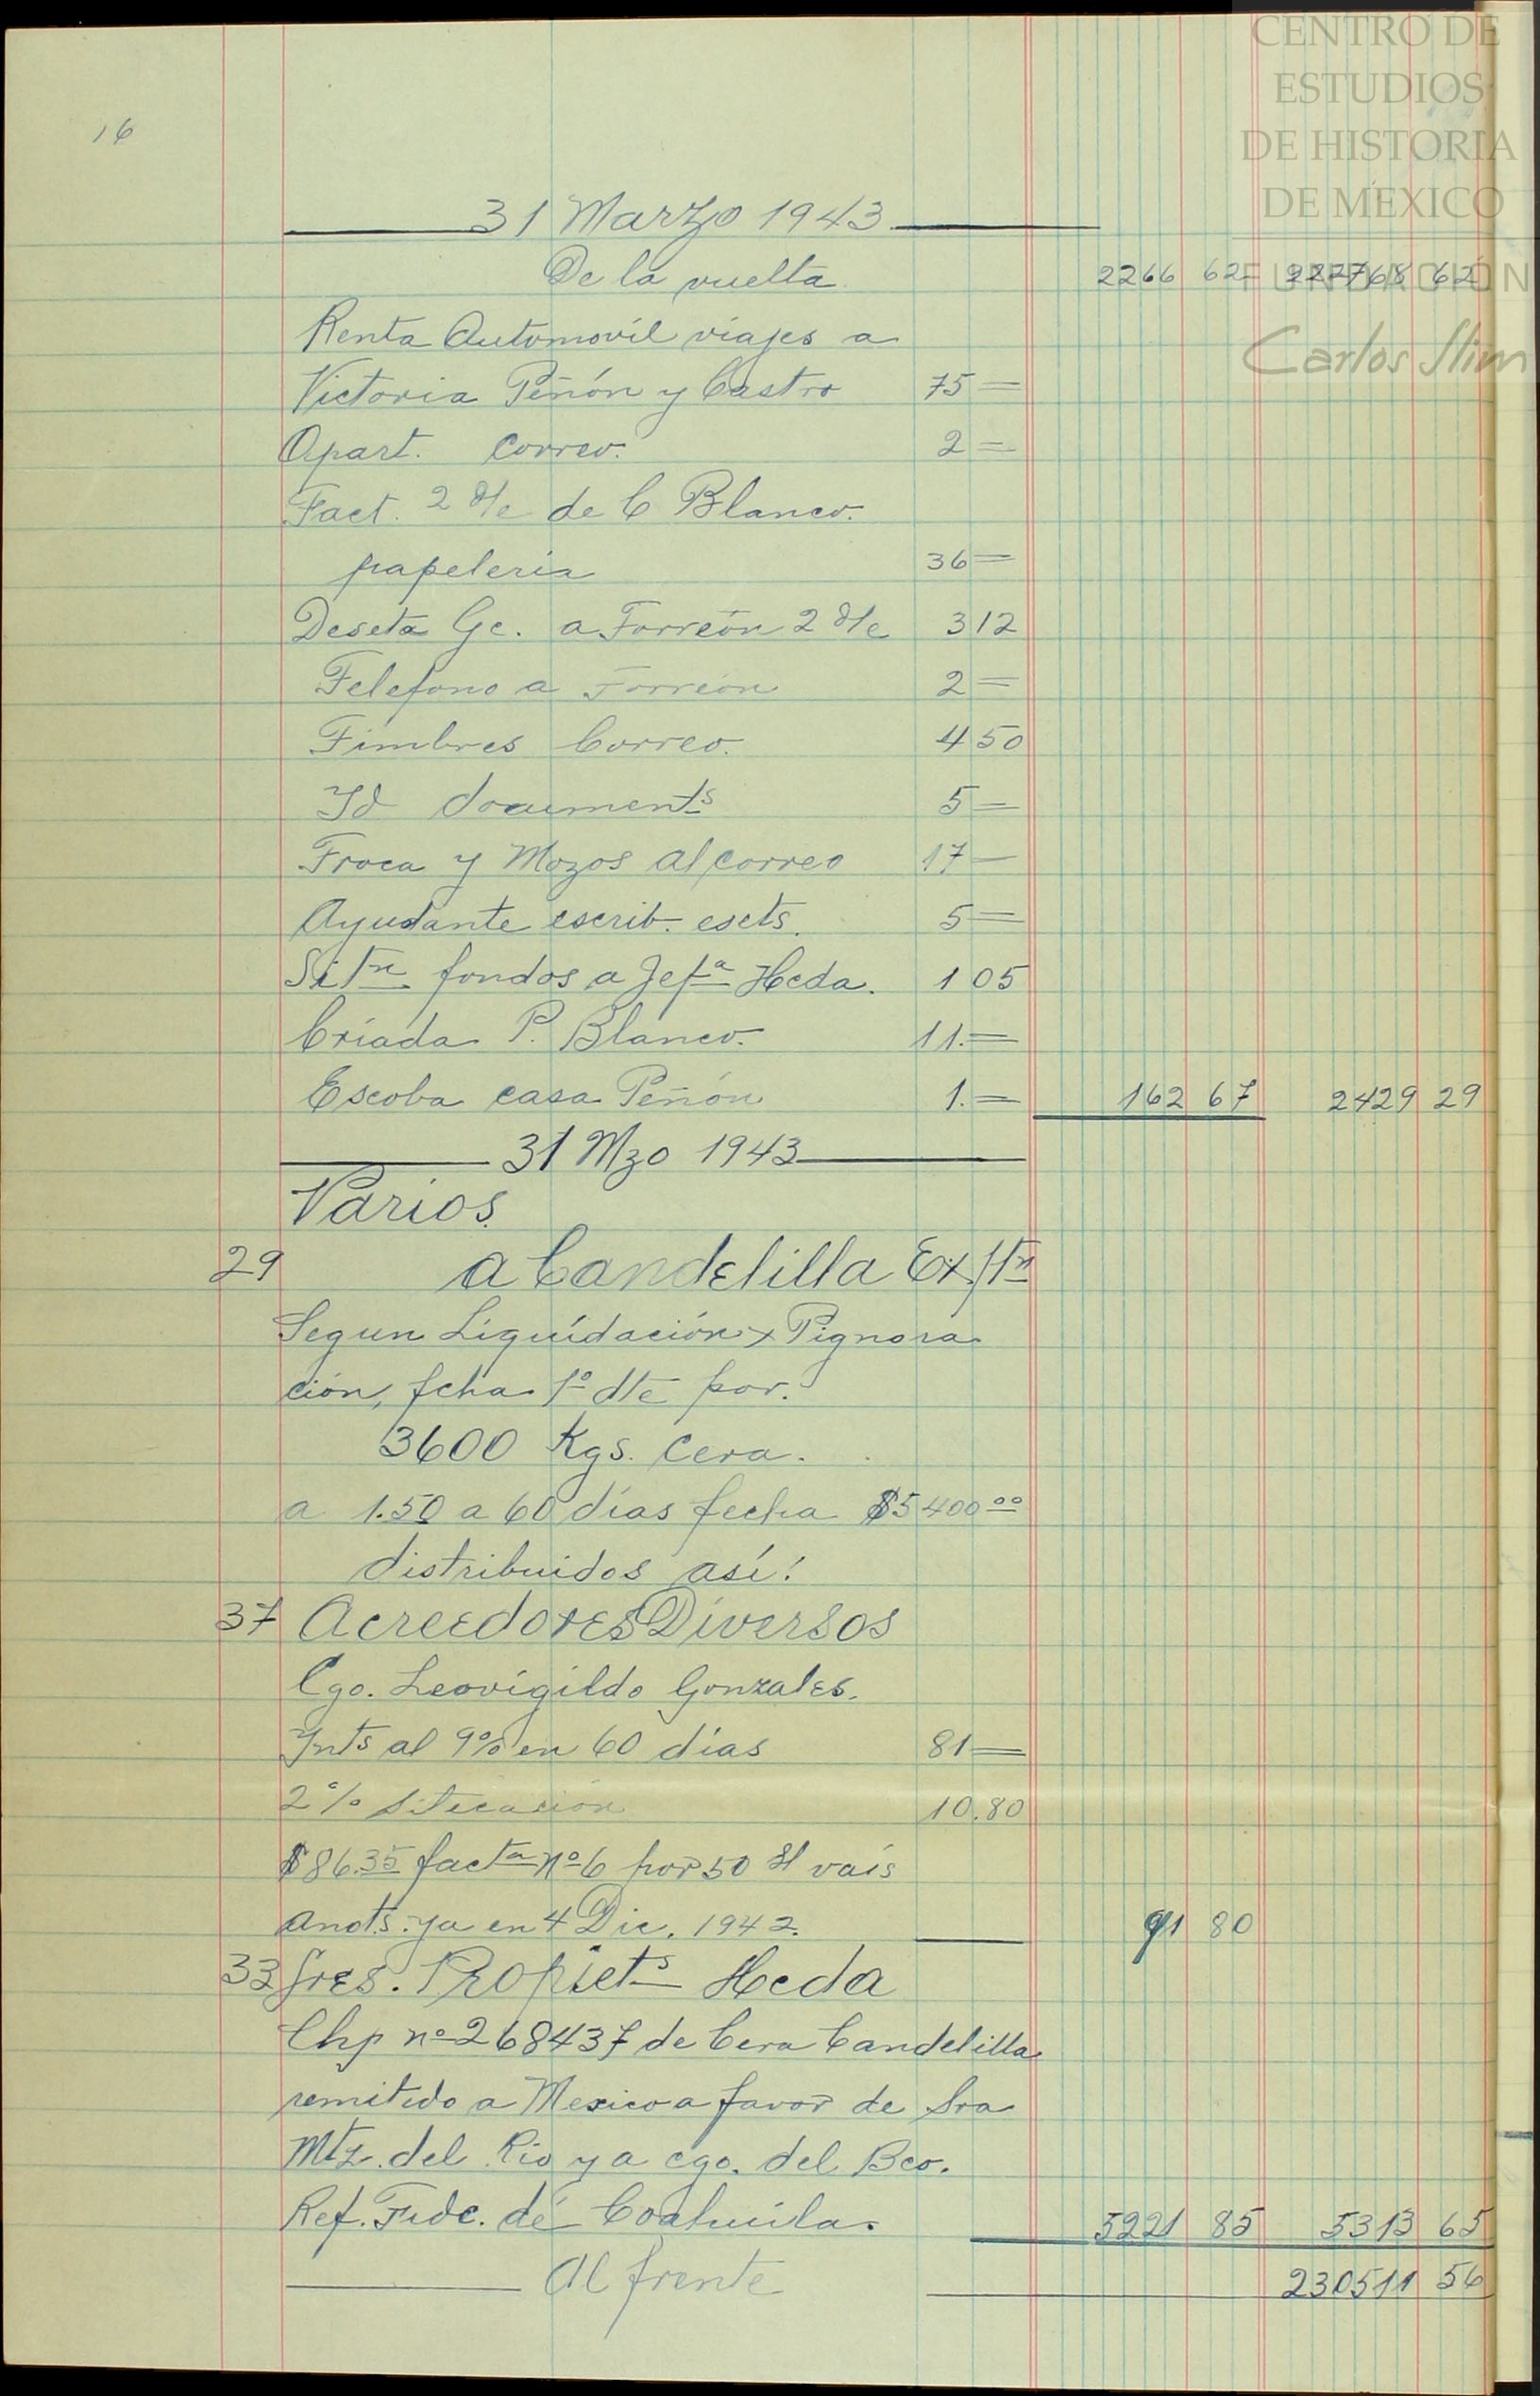 16
CENTRO DE
ESTUDIOS
DE HISTORIA
DE MEXICO
FUNDACION
Carlos Slim
31 Marzo 1943
De la vuelta 2266 62 222768 62
Renta Automovil viajes a
Victoria Peñón y Castro 75 =
Apart. Correo. 2 =
Fact. 2 de C Blanco.
papeleria 36 =
a Torreón 2 3 12
Telefono a Torreón 2 =
Timbres Correo. 4 50
Id documents 5 =
Troca y Mozos al correo 17 —
Ayudante escrib. escts. 5 =
Sitn fondos a Jefa Hcda. 1 05
Criada P. Blanco. 11. =
Escoba casa Peñón 1. = 162 67 2429 29
31 Mzo 1943
Varios
29 a Candelilla
Segun Liquidación x Pignora
ción, fcha 1º dte por.
3600 Kgs. Cera.
a 1.50 a 60 días fecha $5400 00
distribuidos así:
37 Acreedores Diversos
Cgo. Leovigildo Gonzales.
Ynts al 9% en 60 días 81 =
2 % Sitecasión 10.80
$86.35 facta nº 6 por 50
anots. ya en 4 Dic. 1942. 91 80
33 Sres. Propiets Hcda
Chp nº 268437 de Cera Candelilla
remitido a Mexico a favor de Sra
Mtz. del Rio y a cgo. del Bco.
Ref. Fidc. de Coahuila. 5221 85 5313 65
Al frente 230511 56